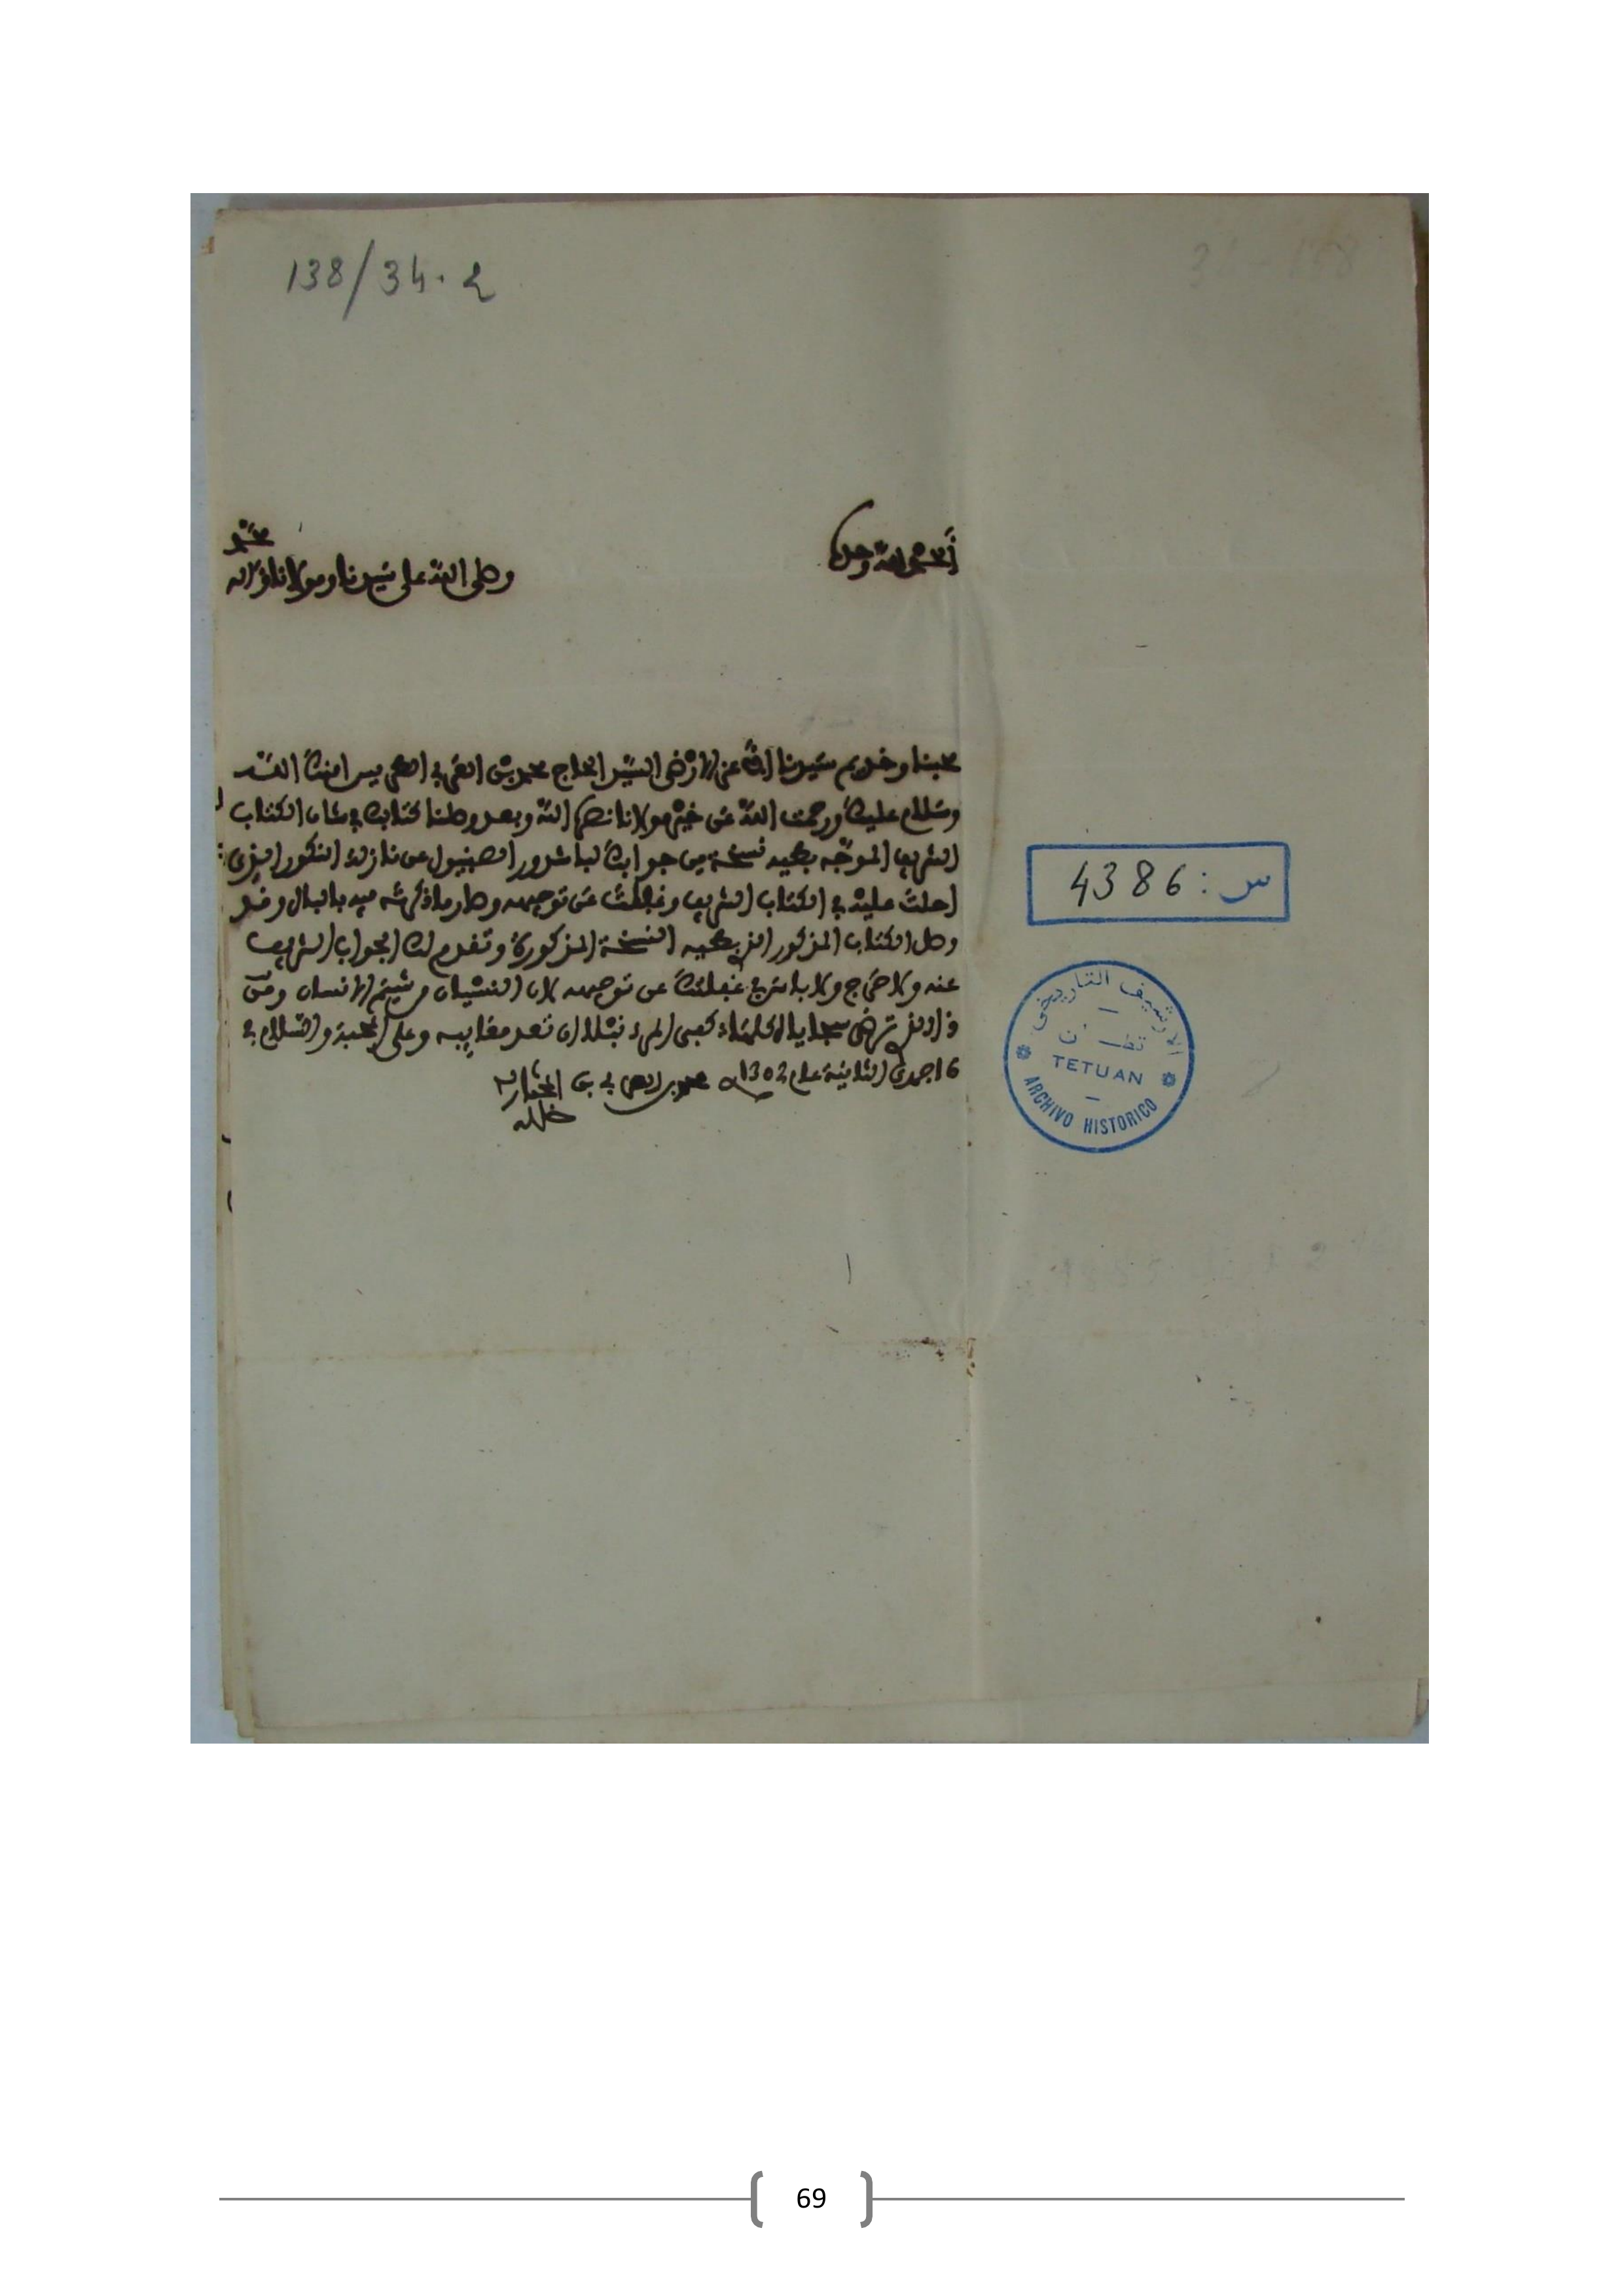 138/34.2
الحمد لله وحده
وصلى الله على سيدنا ومولانا محمد وآله
محبنا وخديم سيدنا الأعز الأرضى السيد الحاج محمد بن العربي الطريس أمنك الله
وسلام عليك ورحمت الله عن خير مولانا نصره الله وبعد وصلنا كتابك في شأن الكتاب
الشريف الموجه بطيه نسخة من جوابك لباشدور الصبنيول عن نازلة النكور الذي
أحلت عليه في الكتاب الشريف وغفلت عن توجيهه وصار ما ذكرته فيه بالبال وقد
وصل الكتاب المذكور الذي بطيه النسخة المذكورة وتقدم لك الجواب الشريف
عنه ولا حرج ولا باس في غفلتك عن توجيهه لان النسيان من شيم الانسان ومن
ذا الذي ترضى سجاياه كلها كفى المرء نبلا ان تعد معايبه وعلى المحبة والسلام في
16 جمدى الثانية عام 1302 محمد بن العربي بن المختار
خار الله له
س : 4386
الارشيف التاريخي
تطـــان
TETUAN
ARCHIVO HISTORICO
69